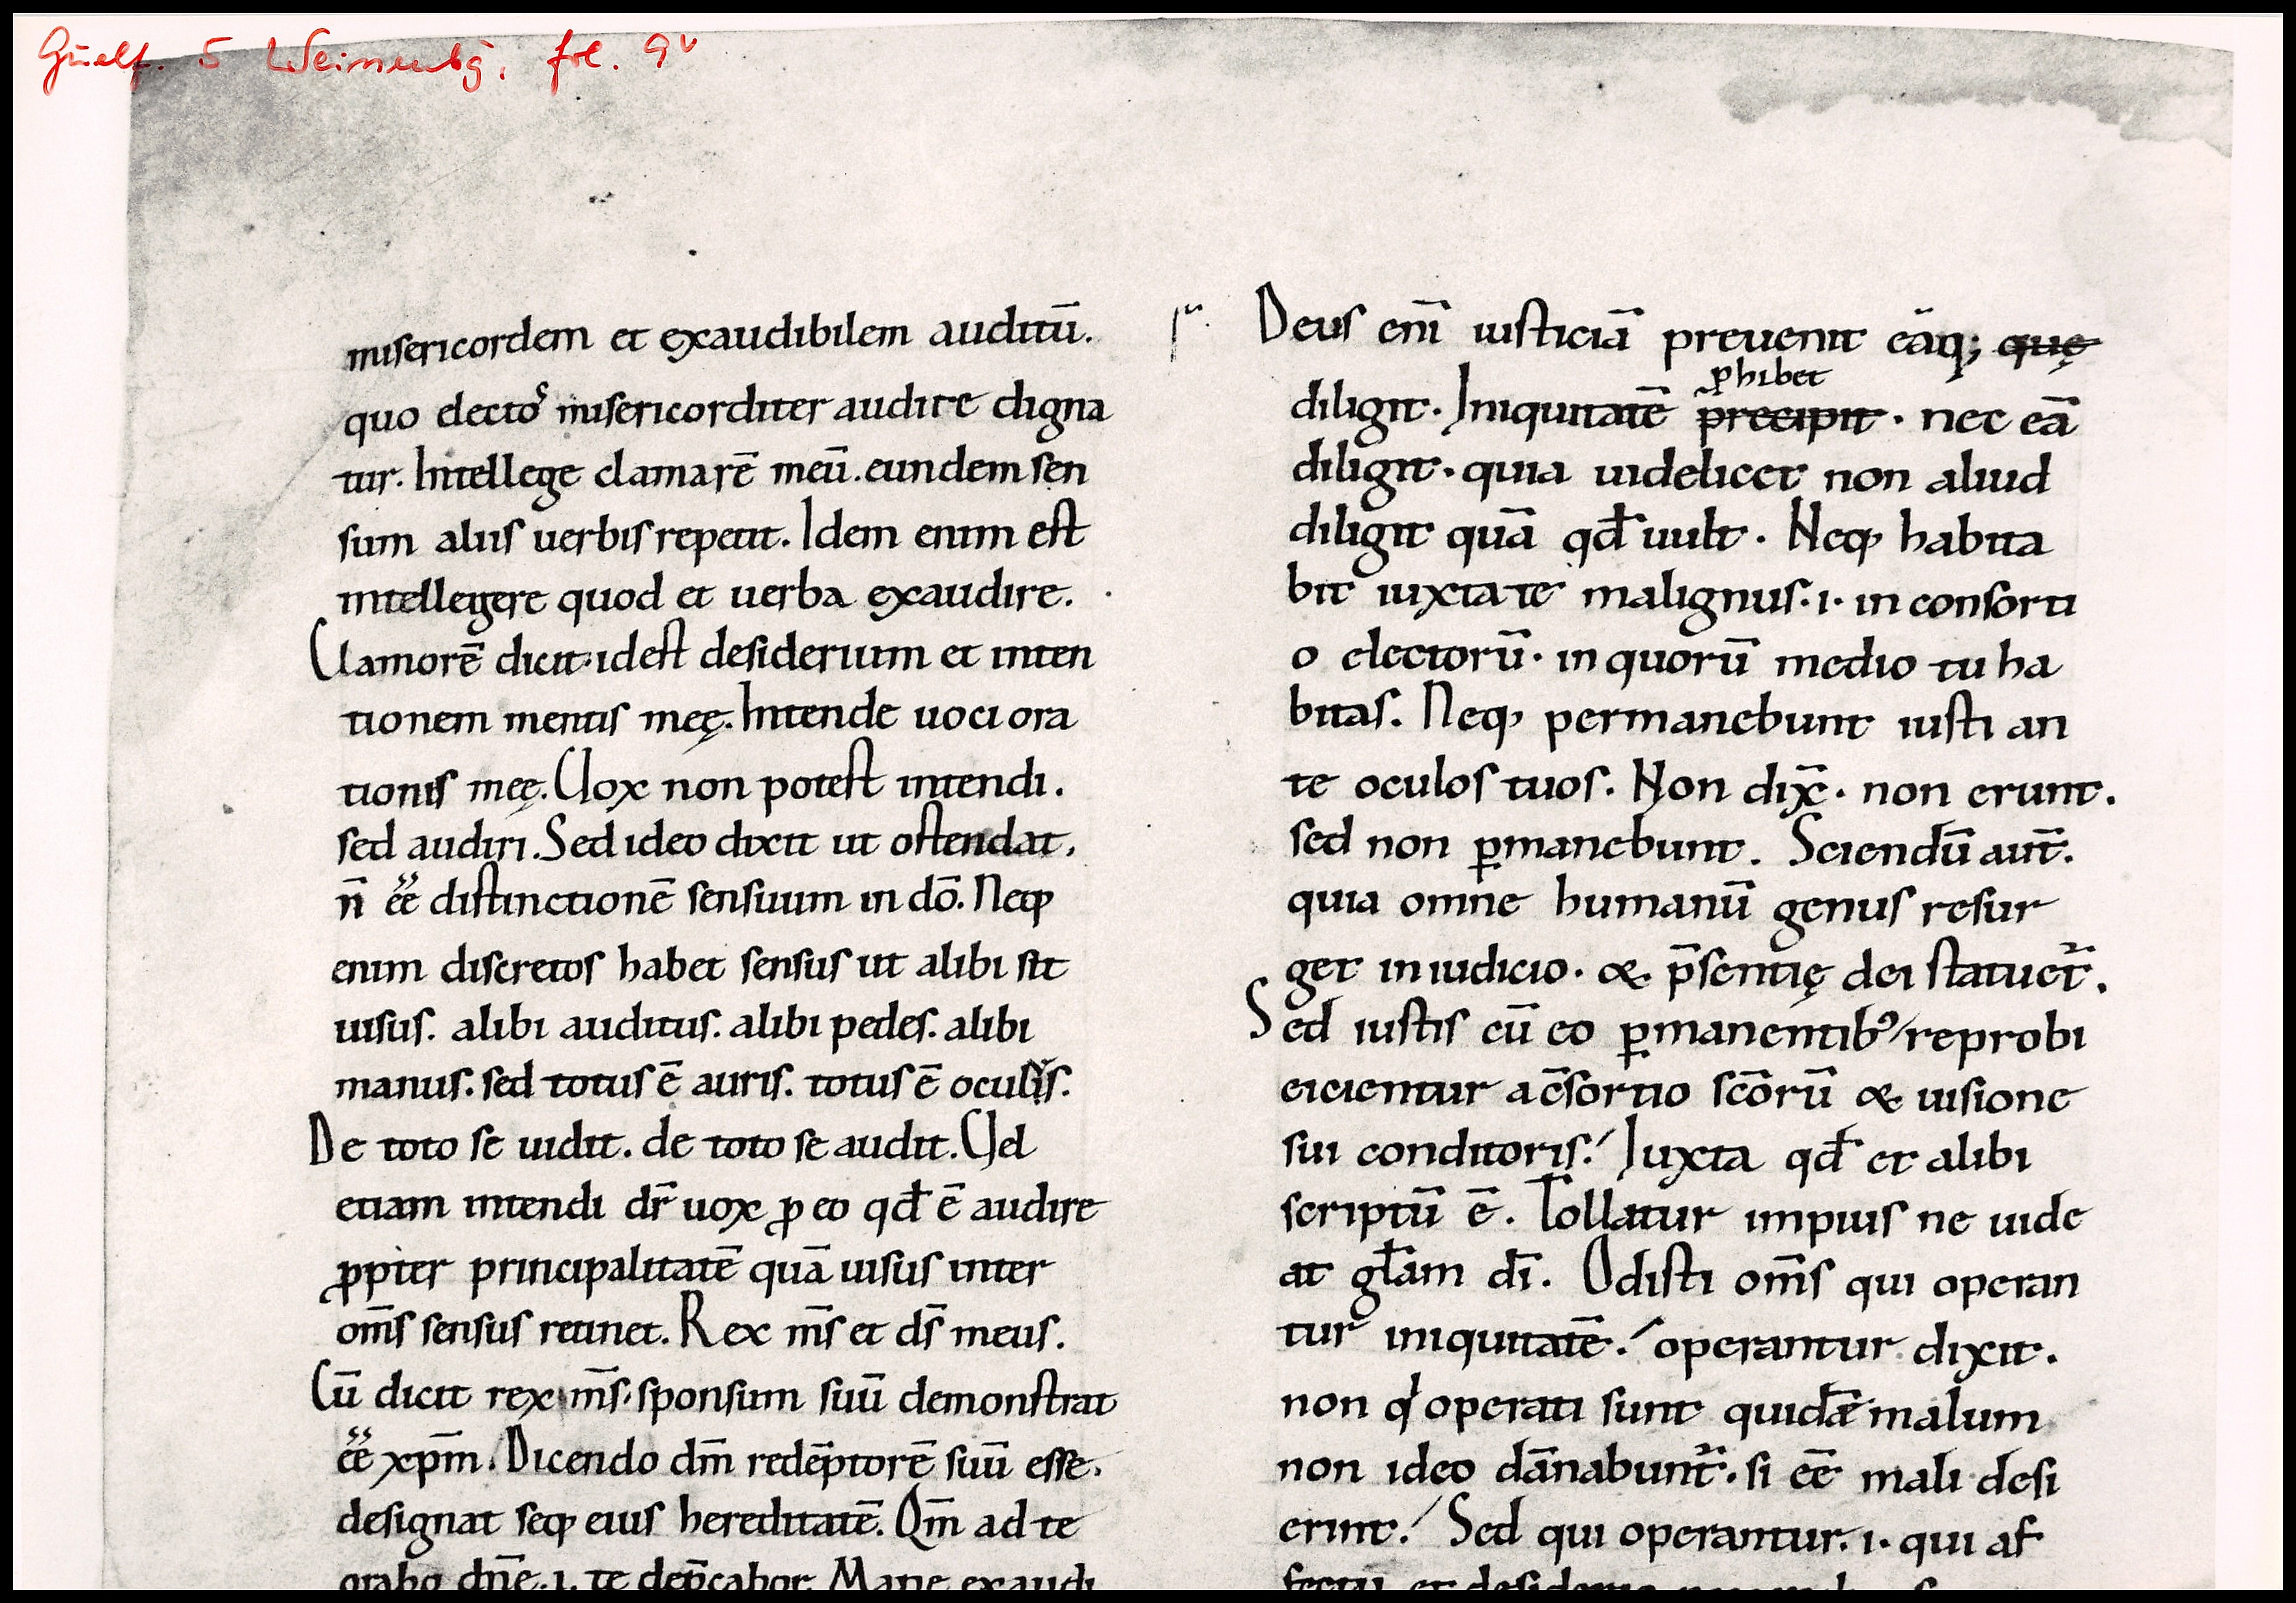 Guelf. 5 Weissenbg. fol. 9v
misericordem et exaudibilem auditū.
quo electoˢ misericorditer audire digna
tur. Intellege clamarē meū. eundem sen
sum aliis uerbis repetit. Idem enim est
intellegere quod et uerba exaudire.
Clamorē dicit· id est desiderium et inten
tionem mentis meę. Intende uoci ora
tionis meę. Uox non potest intendi.
sed audiri. Sed ideo dicit ut ostendat.
n̄ ēē distinctionē sensuum in dō. Neqꝫ
enim discretos habet sensus ut alibi sit
uisus. alibi auditus. alibi pedes. alibi
manus. sed totus ē auris. totus ē oculus.
De toto se uidit. de toto se audit. Uel
etiam intendi dr̄ uox ꝓ eo qđ ē audire
ꝓpter principalitatē quā uisus inter
om̄s sensus retinet. Rex m̄s et ds̄ meus.
Cū dicit rex m̄s· sponsum suū demonstrat
ēē xpm̄. Dicendo dm̄ redēptorē suū esse.
designat seqꝫ eius hereditatē. Qm̄ ad te
orabo dn̄e. ı. te dep̄cabor. Mane exaudi
Deus enī iusticiā preuenit eāq; quę
diligit. Iniquitatē p̄recipit · nec eā
ꝓhibet
diligit· quia uidelicet non aliud
diligit quā qđ uult. Neqꝫ habita
bit iuxta te malignus· ı· in consorti
o electorū· in quorū medio tu ha
bitas. Neqꝫ permanebunt iusti an
te oculos tuos. Non dix̄· non erunt.
sed non ꝑmanebunt. Sciendū aut̄.
quia omne humanū genus resur
get in iudicio· & p̄sentię dei statuet᷑.
Sed iustis cū eo ꝑmanentibꝰ reprobi
eicientur a c̄sortio sc̄orū & uisione
sui conditoris. Iuxta qđ et alibi
scriptū ē. Tollatur impius ne uide
at gl̄am dī. Odisti om̄s qui operan
tur iniquitatē. operantur dixit.
non qđ operati sunt quidā malum
non ideo dānabunt᷑. si ēē mali desi
erint. Sed qui operantur. ı. qui af